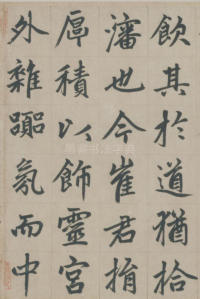 飲其於道猶拾
瀋也今崔君捐
厚積以飾靈宮
外雜氛而中